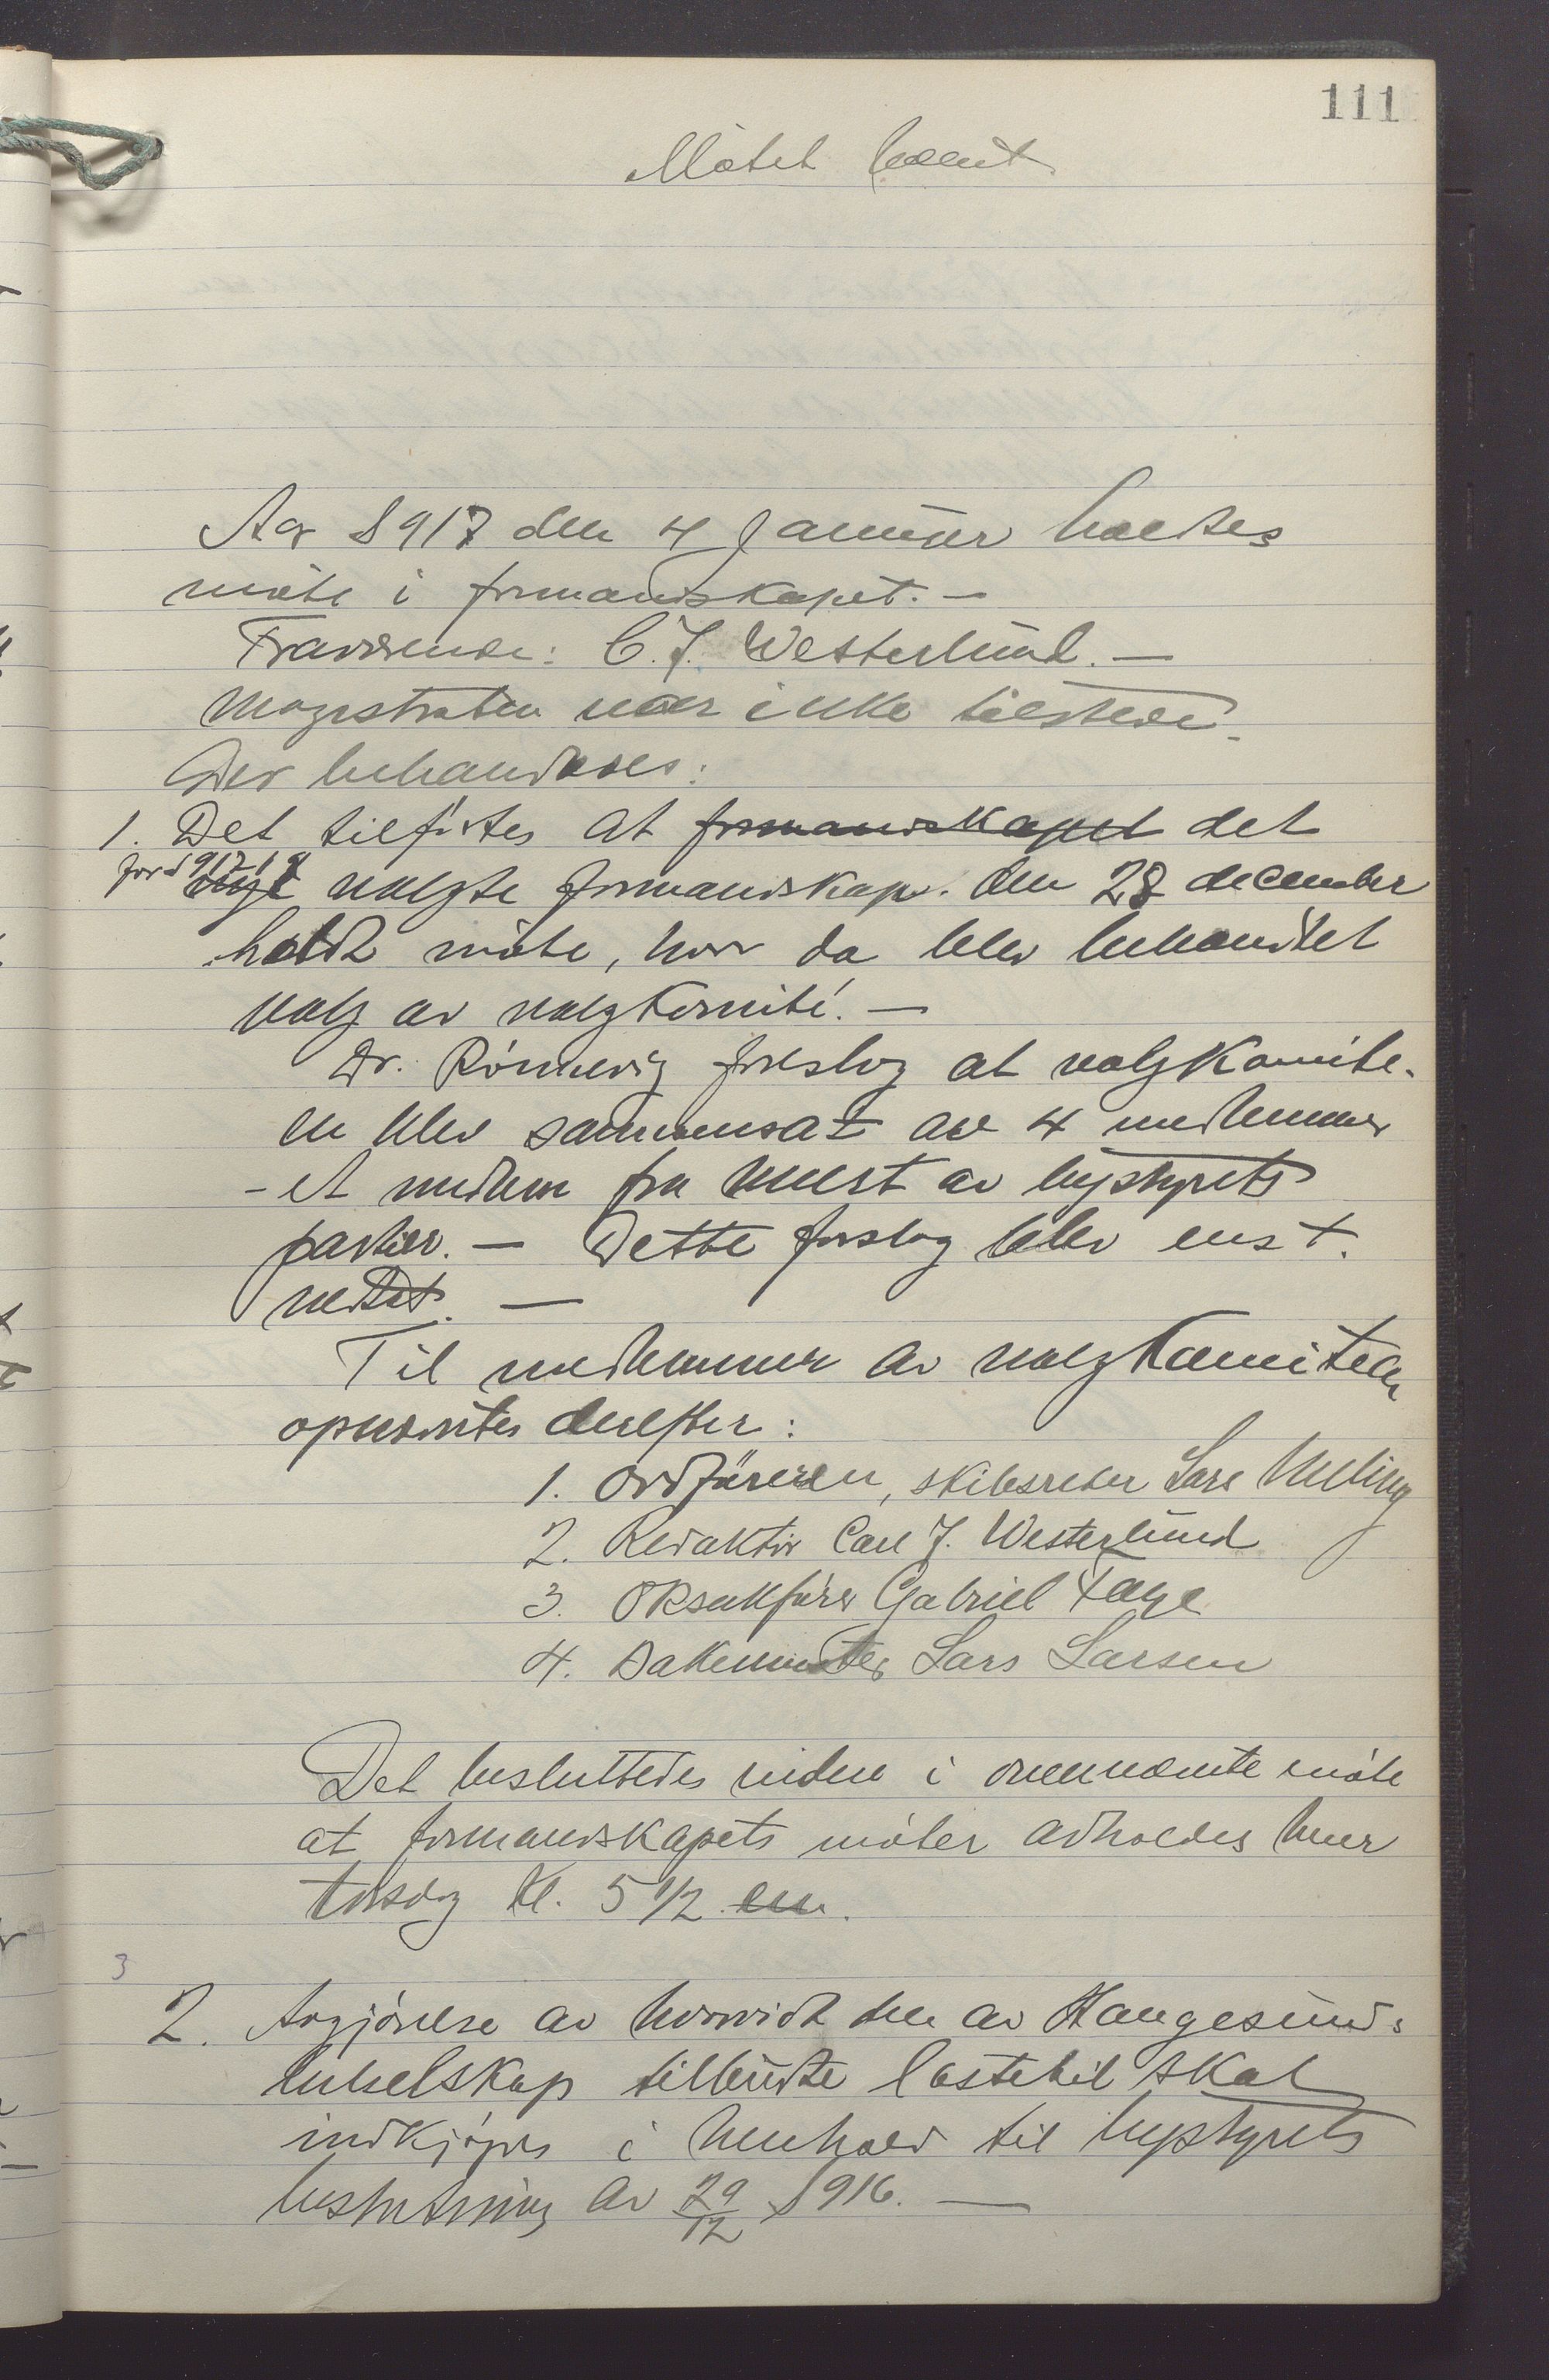 111
Møtet hævet
Aar 1917 den 4 Januar holdtes
møte i formandskapet. —
Fraværende: C. J. Westerlund. —
Magistraten var ikke tilstede.
Der behandledes:
1. Det tilførtes at formandskapet det
for 1917-19 nye valgte formandskap. den 28 december
holdt møte, hvor da blev behandlet
valg av valgkomité. —
Dr. Rønnevig foreslog at valgkomite-
en blev sammensat av 4 medlemmer
- et medlem fra hvert av bystyrets
partier. — Dette forslag blev enst.
vedtat. —
Til medlemmer av valgkomiteen
opnævntes derefter:
1. Ordføreren, skibsreder Lars Melling
2. Redaktør Carl J. Westerlund
3. Oksakfører Gabriel
4. Lars Larsen
Det besluttedes videre i ovennævnte møte
at formandskapets møter avholdes hver
torsdag kl. 5 1/2 em.
3
2. Avgjørelse av hvorvidt den av Haugesunds
bilselskap tilbudte lastebil skal
indkjøpes i henhold til bystyrets
beslutning av 29/12 1916. —